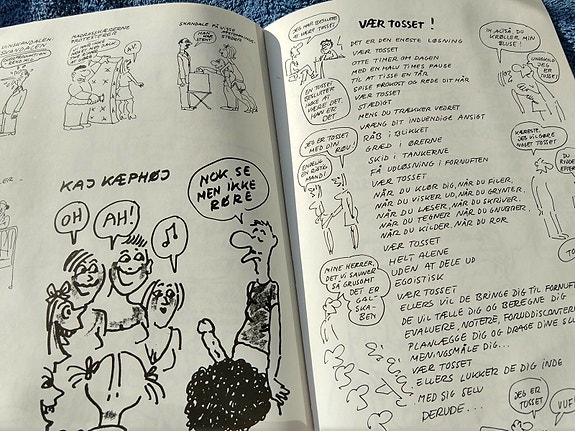 SKANDALEN
MADRASSKÆDERNE
PROTESTERER
AV!
SKANDALE PÅ VISSE
HAN ER
STEN!
KAJ KÆPHØJ
OH
AH!
NOK SE
MEN IKKE
RØRE
VÆR TOSSET!
JEG HAR BESLUTTET
AT VÆRE TOSSET
EN TOSSET
BESLUTTER
IKKE AT
VÆRE DET.
HAN ER
DET
JEG ER TOSSET
MED DIN
RØV!
ENDELIG
EN RIGTIG
MAND!
MINE HERRER,
DET VI SAVNER
SÅ GRUSOMT
DET ER
GAL-
SKA-
BEN
DET ER DEN ENESTE LØSNING
VÆR TOSSET
OTTE TIMER OM DAGEN
MED EN HALV TIMES PAUSE
TIL AT TISSE EN TÅR
SPISE FROKOST OG REDE DIT HÅR
VÆR TOSSET
STÆDIGT
MENS DU TRÆKKER VEJRET
VRÆNG DIT INDVENDIGE ANSIGT
RÅB I BLIKKET
GRÆD I ØRERNE
SKID I TANKERNE
FÅ UDLØSNING I FORNUFTEN
VÆR TOSSET
NÅR DU KLØR DIG, NÅR DU FILER,
NÅR DU VISKER UD, NÅR DU GRYNTER,
NÅR DU LÆSER, NÅR DU SKRIVER,
NÅR DU TEGNER NÅR DU GNUBBER,
NÅR DU KILDER, NÅR DU ROR
VÆR TOSSET
HELT ALENE
UDEN AT DELE UD
EGOISTISK
VÆR TOSSET
ELLERS VIL DE BRINGE DIG TIL FORNUFT
DE VIL TÆLLE DIG OG BEREGNE DIG
EVALUERE, NOTERE, FORUDDISCONTERE
PLANLÆGGE DIG OG DRAGE DINE
MENINGSMÅLE DIG...
VÆR TOSSET
ELLERS LUKKER DE DIG INDE
MED DIG SELV
DERUDE...
IH ALTSÅ! DU
KRØLLER MIN
BLUSE!
UNDSKYLD
JEG ER
TOSSET!
KÆRESTE,
JEG VIL GØRE
NOGET TOSSET
DU
JEG ER
TOSSET
VUF!